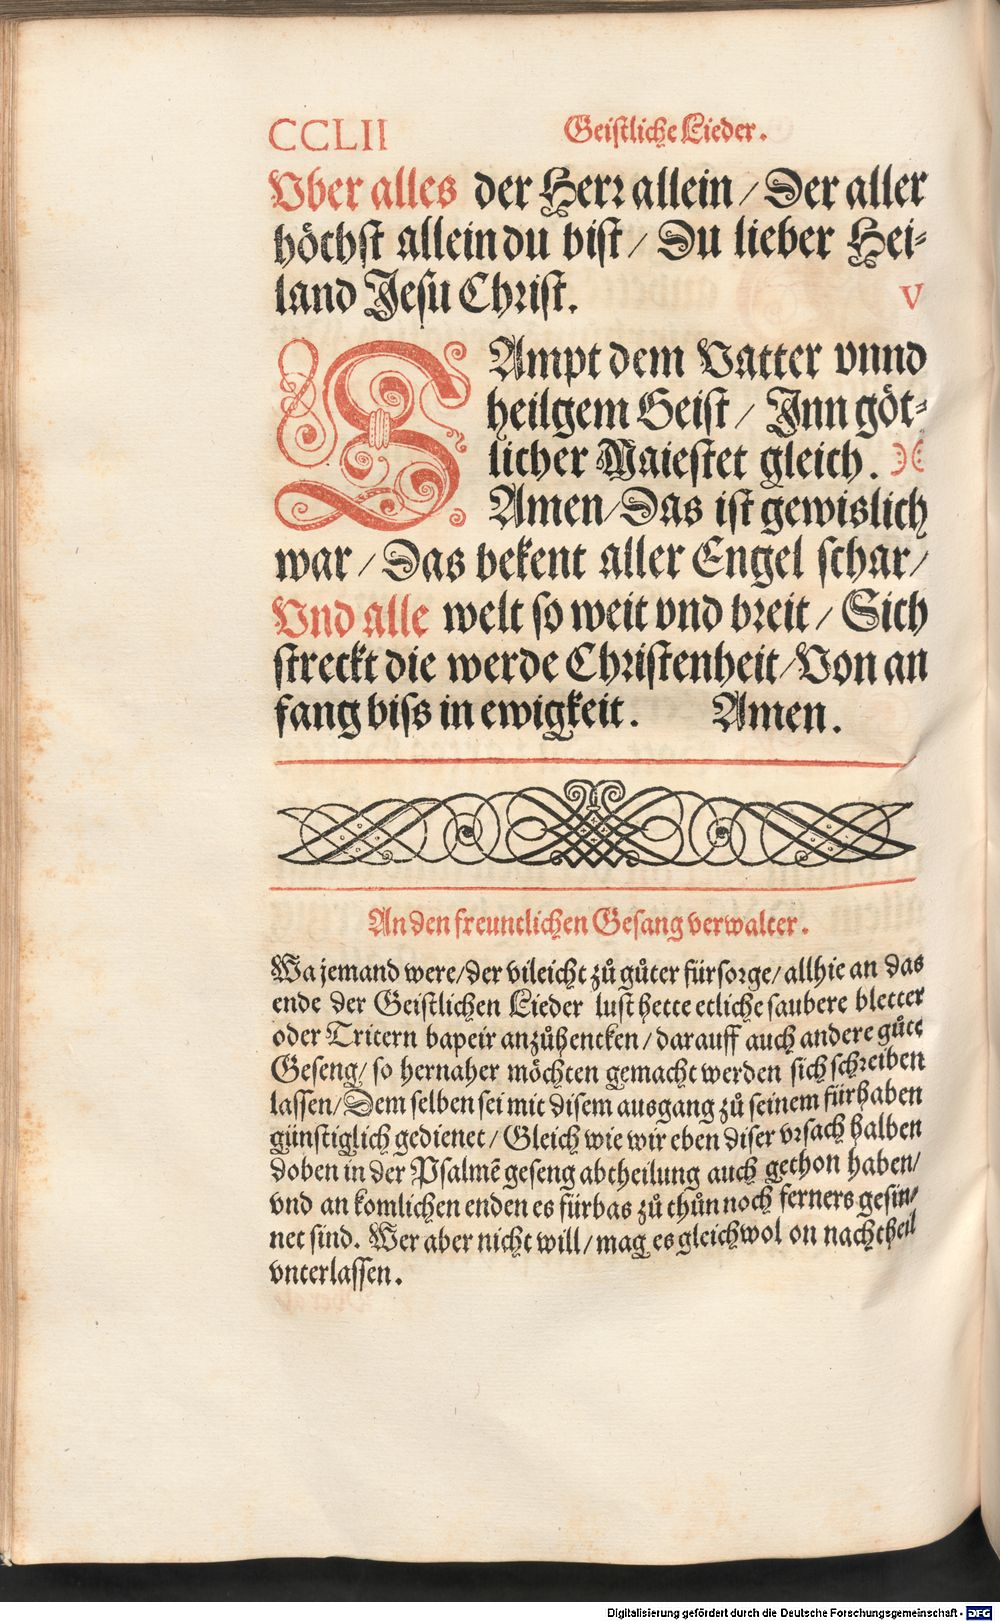 CCLII Geistliche Lieder.
Vber alles der Herr allein / Der aller
höchst allein du bist / Du lieber Hei-
land Jesu Christ. V
SAmpt dem Vatter vnnd
heilgem Geist / Inn göt-
licher Maiestet gleich.
Amen / Das ist gewislich
war / Das bekent aller Engel schar /
Vnd alle welt so weit vnd breit / Sich
streckt die werde Christenheit / Von an
fang biss in ewigkeit. Amen.
An den freuntlichen Gesang verwalter.
Wa jemand were / der vileicht zů gůter fürsorge / allhie an das
ende der Geistlichen Lieder lust hette etliche saubere bletter
oder Tritern bapeir anzůhencken / darauff auch andere gůte
Geseng / so hernaher möchten gemacht werden sich schreiben
lassen / Dem selben sei mit disem ausgang zů seinem fürhaben
günstiglich gedienet / Gleich wie wir eben diser vrsach halben
doben in der Psalmē geseng abtheilung auch gethon haben /
vnd an komlichen enden es fürbas zů thůn noch ferners gesin-
net sind. Wer aber nicht will / mag es gleichwol on nachtheil
vnterlassen.
Digitalisierung gefördert durch die Deutsche Forschungsgemeinschaft - DFG